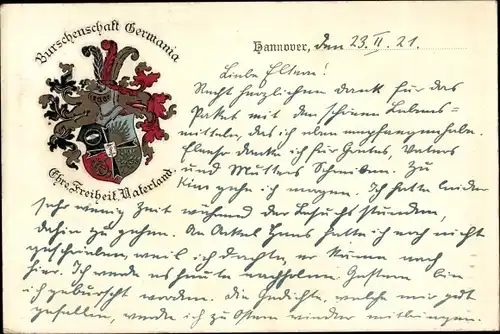 Burschenschaft Germania
Ehre, Freiheit, Vaterland.
Hannover, den 23. II. 21.
Liebe Eltern!
Recht herzlichen Dank für das
Paket mit den schönen Lebens=
mitteln, das ich eben empfangen habe.
Ebenso danke ich für Vaters
und Mutters Schreiben. Zu
gehe ich morgen. Ich hatte leider
sehr wenig Zeit während der Besuchsstunden,
dahin zu gehen. An Onkel Hans hatte ich noch nicht
geschrieben, weil ich dachte, er käme nach
hier. Ich werde es heute nachholen. Gestern bin
ich geburscht worden. Die Gedichte, welche mir gut
gefallen, werde ich zu Ostern wieder mitbringen.